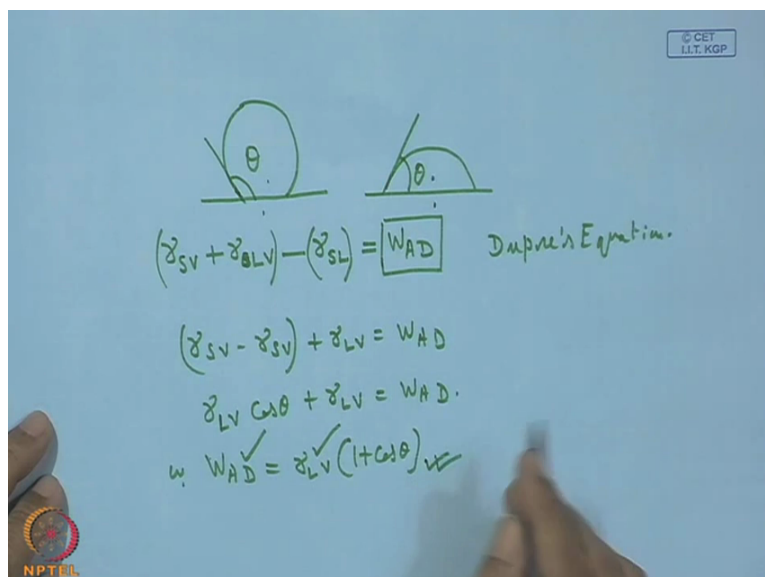 © CET
I.I.T. KGP
θ θ.
(γSV + γLV) − (γSL) = WAD Dupre's Equation.
(γSV - γSV) + γLV = WAD
γLV Cosθ + γLV = WAD.
WAD = γLV (1+Cosθ)
NPTEL